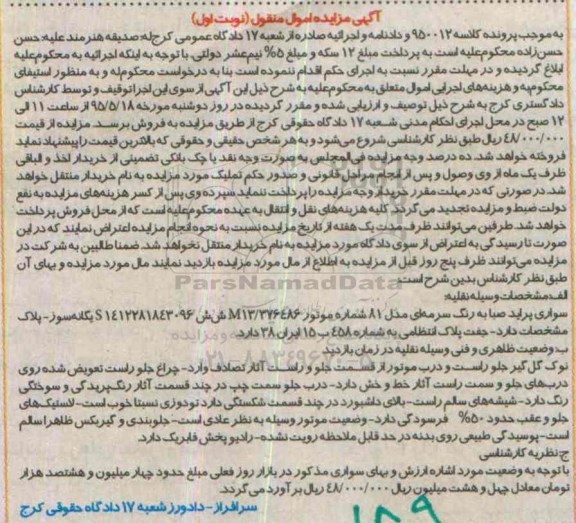 آگهی مزایده اموال منقول (نوبت اول)
به موجب پرونده کلاسه ۹۵۰۰۱۲ و دادنامه و اجرائیه صادره از شعبه ۱۷ دادگاه عمومی کرج له: صدیقه هنرمند علیه: حسن
حسن زاده محکوم علیه است به پرداخت مبلغ ۱۲ سکه و مبلغ ۵% نیم عشر دولتی. با توجه به اینکه اجرائیه به محکوم علیه
ابلاغ گردیده و در مهلت مقرر نسبت به اجرای حکم اقدام ننموده است بنا به درخواست محکوم له و به منظور استیفای
محکوم به و هزینه های اجرایی اموال متعلق به محکوم علیه به شرح ذیل این آگهی از سوی این اجرا توقیف و توسط کارشناس
دادگستری کرج به شرح ذیل توصیف و ارزیابی شده و مقرر گردیده در روز دوشنبه مورخه ۹۵/۵/۱۸ از ساعت ۱۱ الی
۱۲ صبح در محل اجرای احکام مدنی شعبه ۱۷ دادگاه حقوقی کرج از طریق مزایده به فروش برسد. مزایده از قیمت
۴۸/۰۰۰/۰۰۰ ریال طبق نظر کارشناسی شروع می شود و به هر شخص حقیقی و حقوقی که بالاترین قیمت را پیشنهاد نماید
فروخته خواهد شد. ده درصد وجه مزایده فی المجلس به صورت وجه نقد یا چک بانکی تضمینی از خریدار اخذ و الباقی
ظرف یک ماه از وی وصول و پس از انجام مراحل قانونی و صدور حکم تملیک مورد مزایده به نام خریدار منتقل خواهد
شد. در صورتی که در مهلت مقرر خریدار وجه مزایده را پرداخت ننماید سپرده وی پس از کسر هزینه های مزایده به نفع
دولت ضبط و مزایده تجدید می گردد. کلیه هزینه های نقل و انتقال به عهده محکوم علیه است که از محل فروش پرداخت
خواهد شد. طرفین می توانند ظرف مدت یک هفته از تاریخ مزایده نسبت به نحوه انجام مزایده اعتراض نمایند که در این
صورت تا رسیدگی به اعتراض از سوی دادگاه مورد مزایده به نام خریدار منتقل نخواهد شد. ضمنا طالبین به شرکت در
مزایده می توانند ظرف پنج روز قبل از مزایده به اطلاع از مال مورد مزایده بازدید نمایند مال مورد مزایده و بهای آن
طبق نظر کارشناس بدین شرح است:
ParsNamadData
الف: مشخصات وسیله نقلیه:
سواری پراید صبا به رنگ سرمه ای مدل ۸۱ شماره موتور M13/376486 ش ش S1412281843096 یگانه سوز- پلاک
مشخصات دارد- جفت پلاک انتظامی به شماره ۴۵۸ ب ۱۵ ایران ۳۸ دارد.
ب: وضعیت ظاهری و فنی وسیله نقلیه در زمان بازدید
نوک گل گیر جلو راست و درب موتور از قسمت جلو و راست آثار تصادف وارد- چراغ جلو راست تعویض شده روی
درب های جلو و سمت راست آثار خط و خش دارد- درب جلو سمت چپ در چند قسمت آثار رنگ پریدگی و سوختگی
رنگ دارد- شیشه های سالم راست- بالای داشبورد در چند قسمت شکستگی دارد تودوزی نسبتا خوب است- لاستیک های
جلو و عقب حدود ۵۰% فرسودگی دارد- وضعیت موتور وسیله به نظر عادی است- جلوبندی و گیربکس ظاهرا سالم
است- پوسیدگی طبیعی روی بدنه در حد قابل ملاحظه رویت نشده- رادیو پخش فابریک دارد.
ج: نظریه کارشناسی
با توجه به وضعیت مورد اشاره ارزش و بهای سواری مذکور در بازار روز فعلی مبلغ حدود چهار میلیون و هشتصد هزار
تومان معادل چهل و هشت میلیون ریال ۴۸/۰۰۰/۰۰۰ ریال برآورد می گردد.
سرافراز- دادورز شعبه ۱۷ دادگاه حقوقی کرج